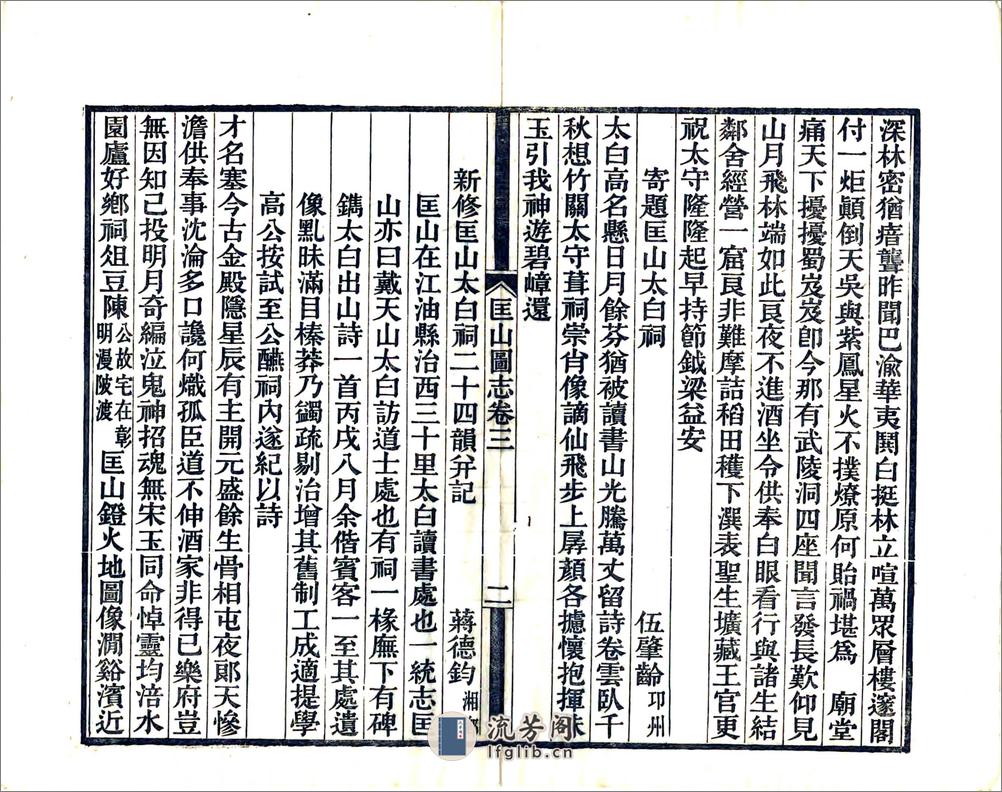 深林密猶瘖聾昨聞巴渝華夷鬨白挺林立喧萬眾層樓邃閣
付一炬顛倒天吳與紫鳳星火不撲燎原何貽禍堪為　廟堂
痛天下擾擾蜀岌岌卽今那有武陵洞四座聞言發長歎仰見
山月飛林端如此良夜不進酒坐令供奉白眼看行與諸生結
鄰舍經營一窟良非難摩詰稻田穫下潠表聖生壙藏王官更
祝太守隆隆起早持節鉞梁益安
寄題匡山太白祠　伍肇齡卭州
太白高名懸日月餘芬猶被讀書山光騰萬丈留詩卷雲臥千
秋想竹關太守葺祠崇肖像謫仙飛步上孱顏各攄懷抱揮珠
玉引我神遊碧嶂還
匡山圖志卷三　二
新修匡山太白祠二十四韻幷記　蔣德鈞湘
匡山在江油縣治西三十里太白讀書處也一統志匡
山亦曰戴天山太白訪道士處也有祠一椽廡下有碑
鐫太白出山詩一首丙戌八月余偕賓客一至其處遺
像黮昧滿目榛莽乃蠲疏剔治增其舊制工成適提學
高公按試至公醼祠內遂紀以詩
才名塞今古金殿隱星辰有主開元盛餘生骨相屯夜郞天慘
澹供奉事沈淪多口讒何熾孤臣道不伸酒家非得已樂府豈
無因知己投明月奇編泣鬼神招魂無宋玉同命悼靈均涪水
園廬好鄉祠俎豆陳公故宅在彰明漫陂渡匡山鐙火地圖像澗谿濱近
流芳阁
lfglib.cn